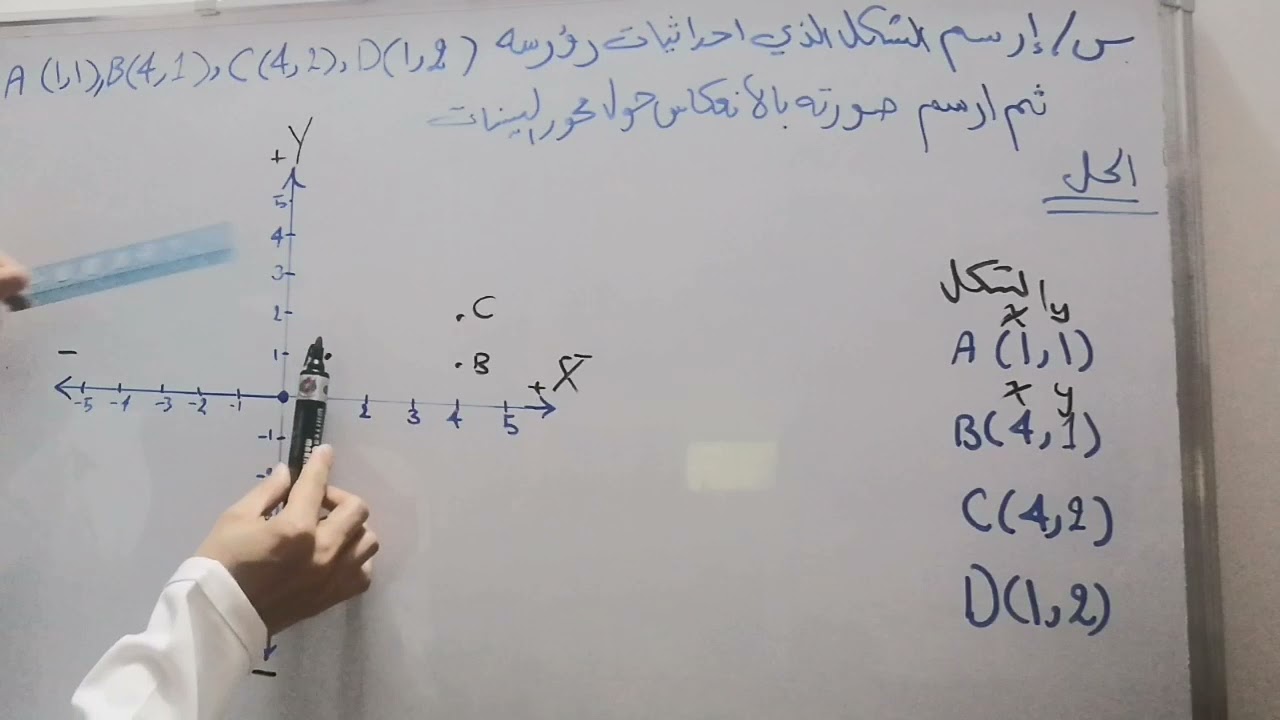 س/ إرسم الشكل الذي احداثيات رؤرسه A (1,1), B(4,1), C(4,2), D(1,2)
ثم ارسم صورته بالأنعكاس حول محور السينات
الحل
+ Y
5
4
3
2
1
- -5 -4 -3 -2 -1 2 3 4 5 + X
-1
-
C
B
الشكل
x y
A (1,1)
x y
B(4,1)
C(4,2)
D(1,2)